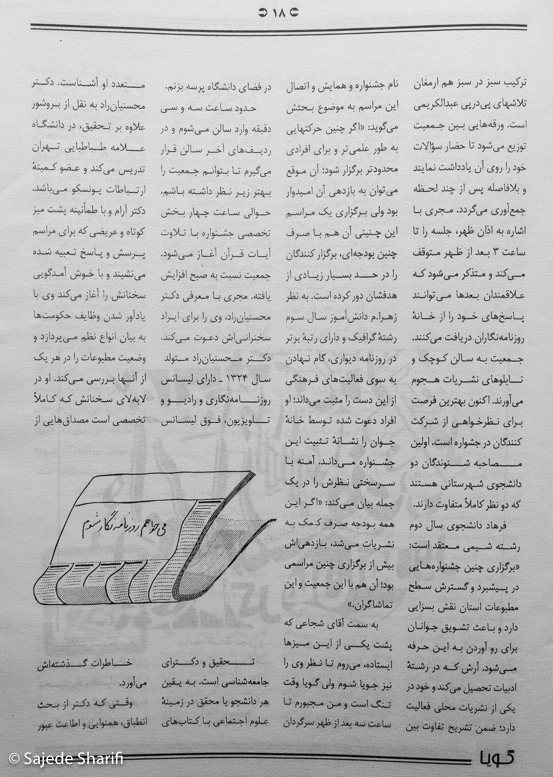 ۱۸
ترکیب سبز در سبز هم ارمغان
تلاشهای پی‌درپی عبدالکریمی
است. ورقه‌هایی بین جمعیت
توزیع می‌شود تا حضار سؤالات
خود را روی آن یادداشت نمایند
و بلافاصله پس از چند لحظه
جمع‌آوری می‌گردد. مجری با
اشاره به اذان ظهر، جلسه را تا
ساعت ۳ بعد از ظهر متوقف
می‌کند و متذکر می‌شود که
علاقمندان بعدها می‌توانند
پاسخ‌های خود را از خانهٔ
روزنامه‌نگاران دریافت می‌کنند.
جمعیت به سالن کوچک و
تابلوهای نشریات هجوم
می‌آورند. اکنون بهترین فرصت
برای نظرخواهی از شرکت
کنندگان در جشواره است. اولین
مصاحبه شنوندگان دو
دانشجوی شهرستانی هستند
که دو نظر کاملاً متفاوت دارند.
فرهاد دانشجوی سال دوم
رشته شیمی معتقد است:
«برگزاری چنین جشنواره‌هایی
در پیشبرد و گسترش سطح
مطبوعات استان نقش بسزایی
دارد و باعث تشویق جوانان
برای رو آوردن به این حرفه
می‌شود. آرش که در رشتهٔ
ادبیات تحصیل می‌کند و خود در
یکی از نشریات محلی فعالیت
دارد؛ ضمن تشریح تفاوت بین
نام جشنواره و همایش و اتصال
این مراسم به موضوع بحثش
می‌گوید: «اگر چنین حرکتهایی
به طور علمی‌تر و برای افرادی
محدودتر برگزار شود؛ آن موقع
می‌توان به بازدهی آن امیدوار
بود ولی برگزاری یک مراسم
این چنینی آن هم با صرف
چنین بودجه‌ای، برگزار کنندگان
را در حد بسیار زیادی از
هدفشان دور کرده است. به نظر
زهرا.م دانش‌آموز سال سوم
رشتهٔ گرافیک و دارای رتبهٔ برتر
در روزنامه دیواری، گام نهادن
به سوی فعالیت‌های فرهنگی
از این دست را مثبت می‌داند؛ او
افراد دعوت شده توسط خانهٔ
جوان را نشانهٔ تثبیت این
جشنواره می‌داند. آمنه با
سرسختی نظرش را در یک
جمله بیان می‌کند: «اگر این
همه بودجه صرف کمک به
نشریات می‌شد، بازدهی‌اش
بیش از برگزاری چنین مراسمی
بود؛ آن هم با این جمعیت و این
تماشاگران.»
به سمت آقای شجاعی که
پشت یکی از این میزها
ایستاده، می‌روم تا نظر وی را
نیز جویا شوم ولی گویا وقت
تنگ است و من مجبورم تا
ساعت سه بعد از ظهر سرگردان
در فضای دانشگاه پرسه بزنم.
حدود ساعت سه و سی
دقیقه وارد سالن می‌شوم و در
ردیف‌های آخر سالن قرار
می‌گیرم تا بتوانم جمعیت را
بهتر زیر نظر داشته باشم.
حوالی ساعت چهار بخش
تخصصی جشنواره با تلاوت
آیات قرآن آغاز می‌شود.
جمعیت نسبت به صبح افزایش
یافته. مجری با معرفی دکتر
محسنیان‌راد، وی را برای ایراد
سخنرانی‌اش دعوت می‌کند.
دکتر محسنیان‌راد متولد
سال ۱۳۲۴ - دارای لیسانس
روزنامه‌نگاری و رادیو و
تلویزیون، فوق لیسانس
تحقیق و دکترای
جامعه‌شناسی است. به یقین
هر دانشجو یا محقق در زمینهٔ
علوم اجتماعی با کتاب‌های
متعدد او آشناست. دکتر
محسنیان‌راد به نقل از بروشور
علاوه بر تحقیق، در دانشگاه
علامه طباطبایی تهران
تدریس می‌کند و عضو کمیتهٔ
ارتباطات یونسکو می‌باشد.
دکتر آرام و با طمأنینه پشت میز
کوتاه و عریضی که برای مراسم
پرسش و پاسخ تعبیه شده
می‌نشیند و با خوش آمدگویی
سخنانش را آغاز می‌کند وی با
یادآور شدن وظایف حکومت‌ها
به بیان انواع نظم می‌پردازد و
وضعیت مطبوعات را در هر یک
از آنها بررسی می‌کند. او در
لابه‌لای سخنانش که کاملاً
تخصصی است مصداق‌هایی از
خاطرات گذشته‌اش
می‌آورد.
وقتی که دکتر از بحث
انطباق، همنوایی و اطاعت عبور
می‌خواهم روزنامه‌نگار شوم
گویا
© Sajede Sharifi